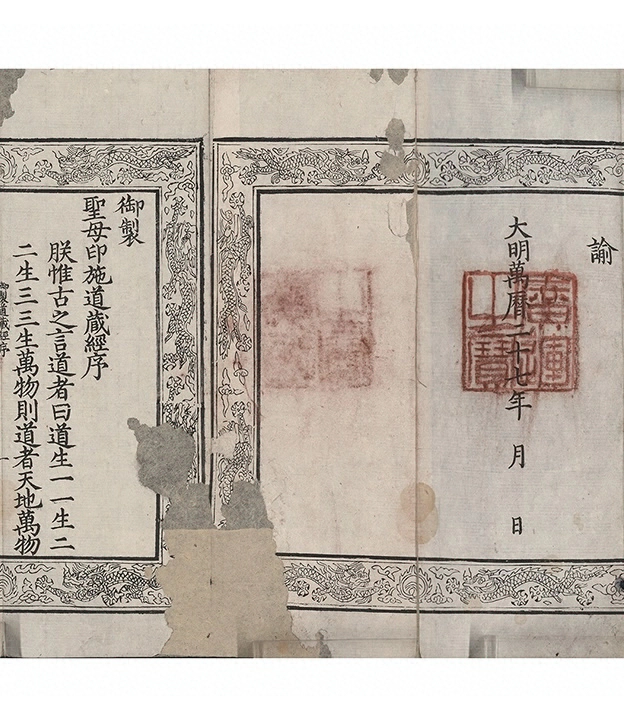 諭
大明萬曆二十七年 月 日
廣運之寶
御製
聖母印施道藏經序
朕惟古之言道者曰道生一一生二
二生三三生萬物則道者天地萬物
御製道藏經序